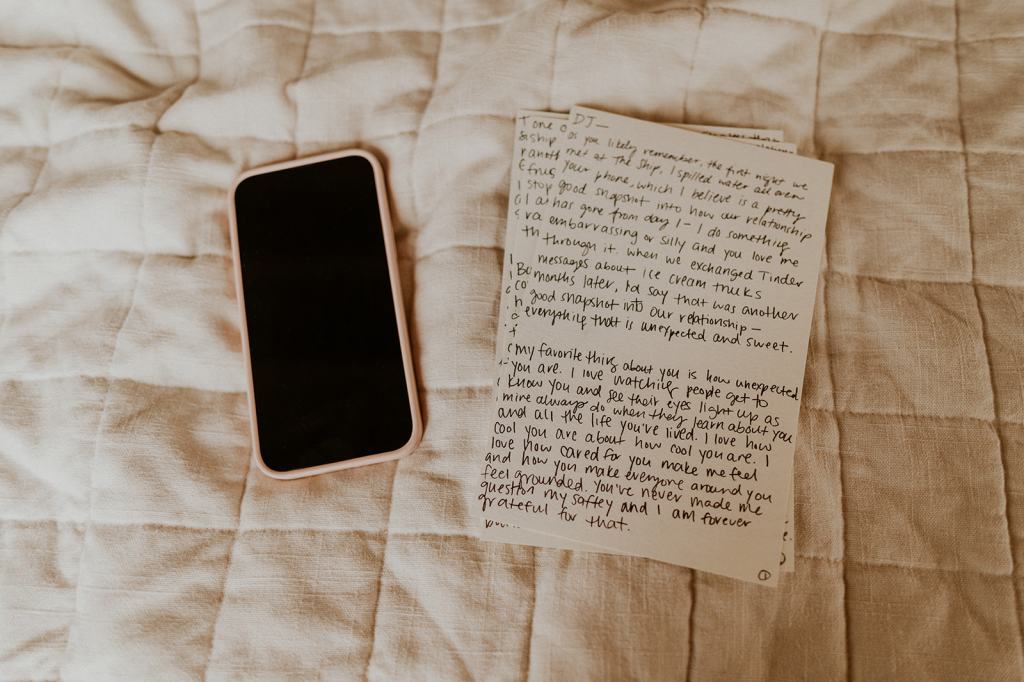 DJ—
as you likely remember, the first night we
met at The Ship, I spilled water all over
your phone, which I believe is a pretty
good snapshot into how our relationship
has gone from day 1 – I do something
embarrassing or silly and you love me
through it. when we exchanged Tinder
messages about ice cream trucks
months later, I'd say that was another
good snapshot into our relationship —
everything that is unexpected and sweet.
my favorite thing about you is how unexpected
you are. I love watching people get to
know you and see their eyes light up as
mine always do when they learn about you
and all the life you've lived. I love how
cool you are about how cool you are. I
love how cared for you make me feel
and how you make everyone around you
feel grounded. You've never made me
question my saftey and I am forever
grateful for that.
1